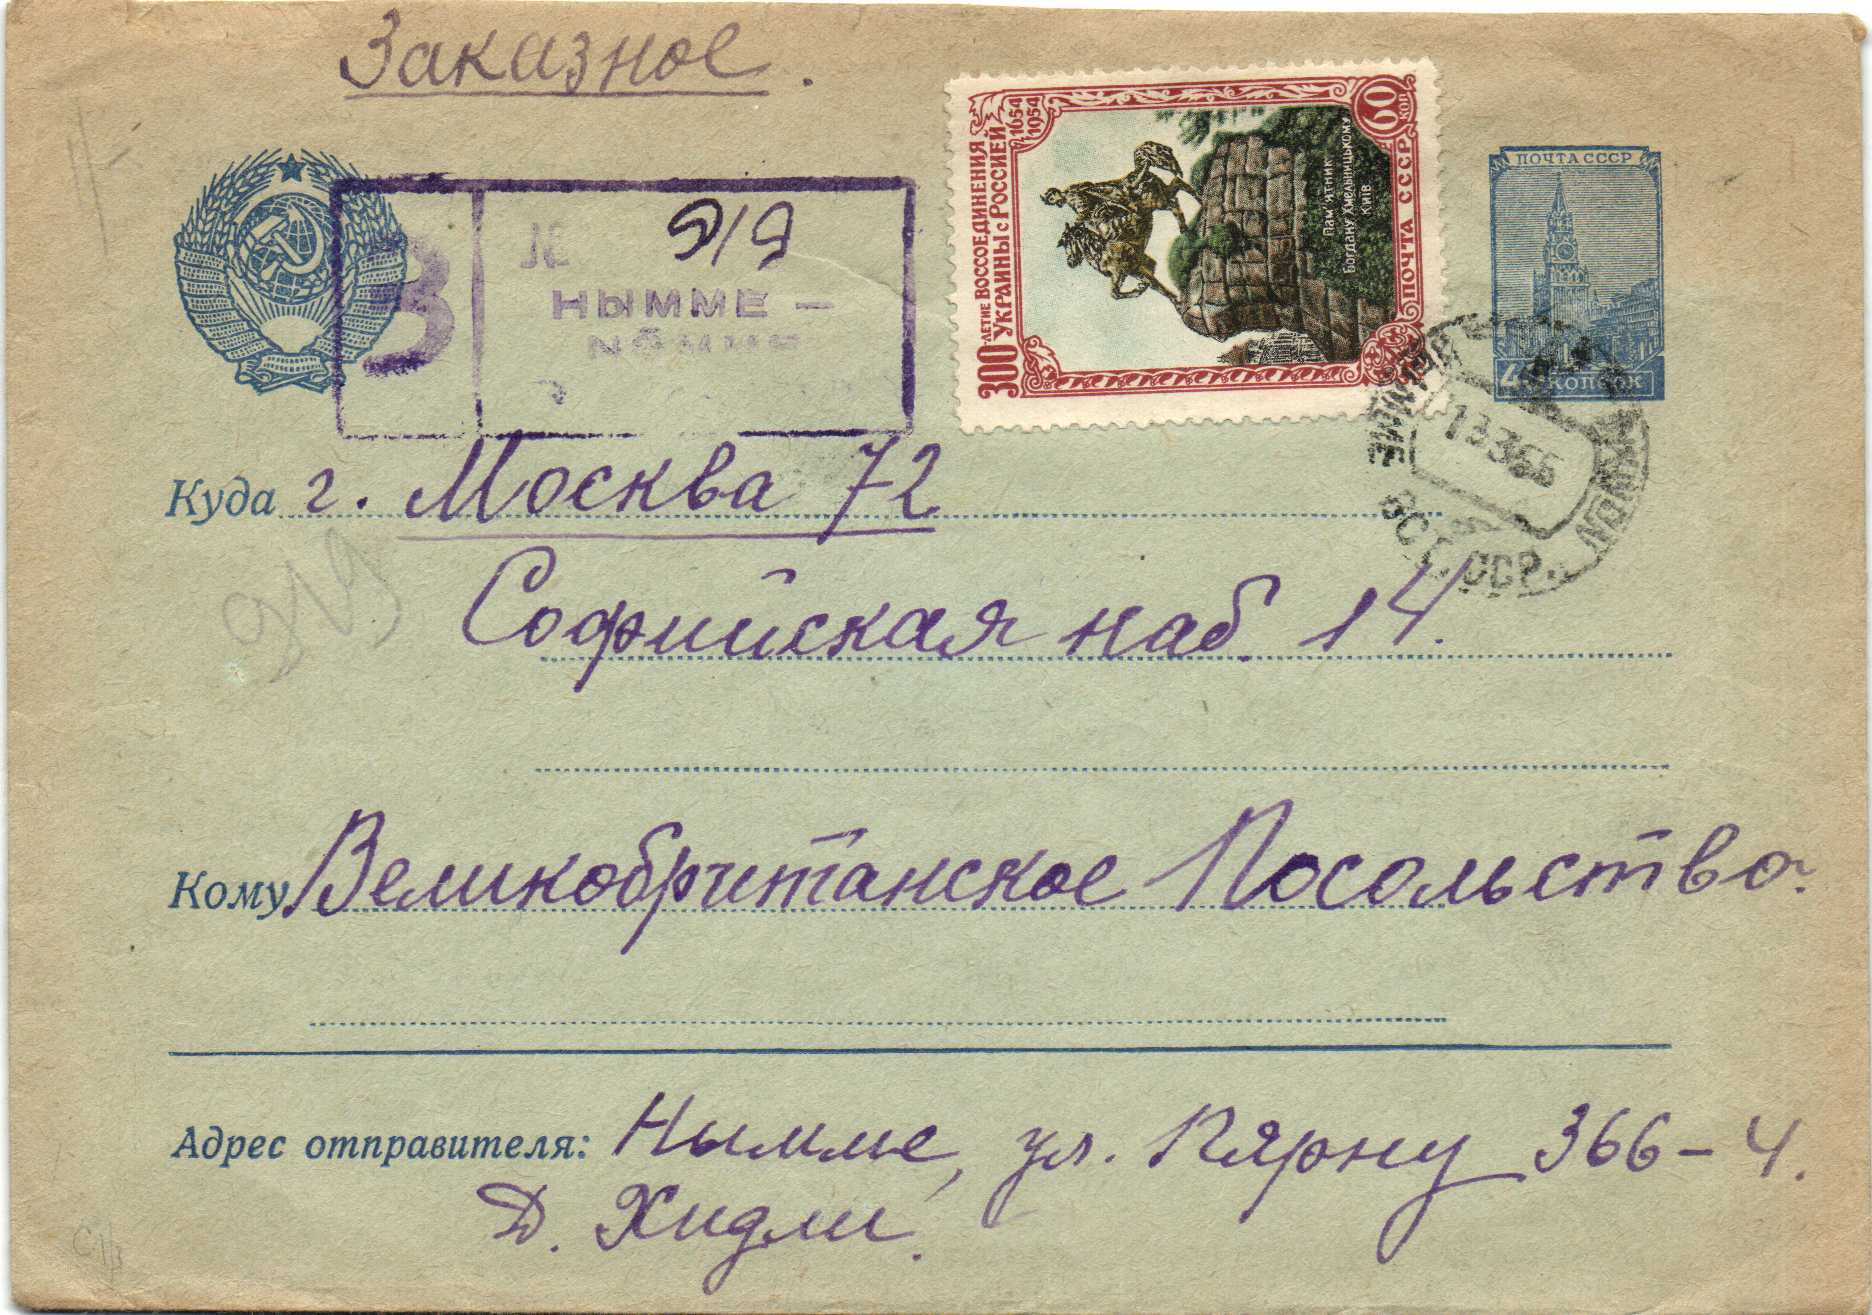 Заказное.
З
919
НЫММЕ —
NÕMME
300-ЛЕТИЕ ВОССОЕДИНЕНИЯ
УКРАИНЫ с РОССИЕЙ
1654
1954
60
КОП
Пам'ятник
Богдану Хмельницькому
Київ
ПОЧТА СССР
ПОЧТА СССР
КОПЕЕК
НЫММЕ
13356
NÕMME
ЭСТ. ССР.
Куда г. Москва 72
Софийская наб. 14.
919
Кому Великобританское Посольство.
Адрес отправителя: Нымме, ул. Пярну 366-4.
Д. Хидли.